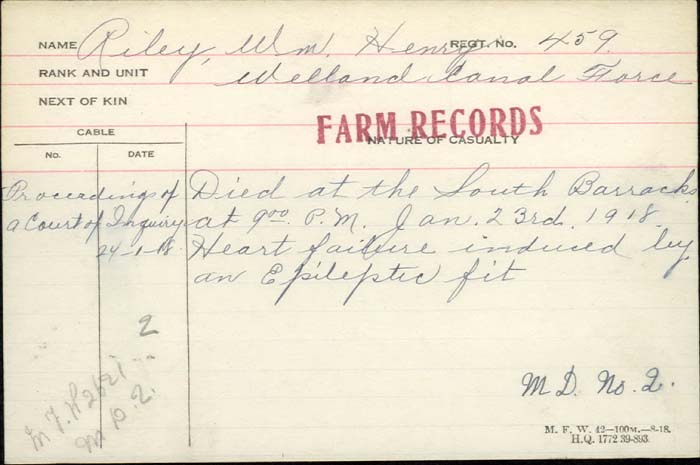 NAME Riley, Wm. Henry REGT. NO. 459.
RANK AND UNIT Welland Canal Force
NEXT OF KIN
FARM RECORDS
CABLE
NATURE OF CASUALTY
No. DATE
Proceedings of Died at the South Barracks
a Court of Inquiry at 9 00 P.M. Jan. 23rd. 1918.
24-1-18 Heart failure induced by
an Epileptic fit
2
M.D. No. 2.
M. F. W. 42—100M.—8-18.
H.Q. 1772 39-893.